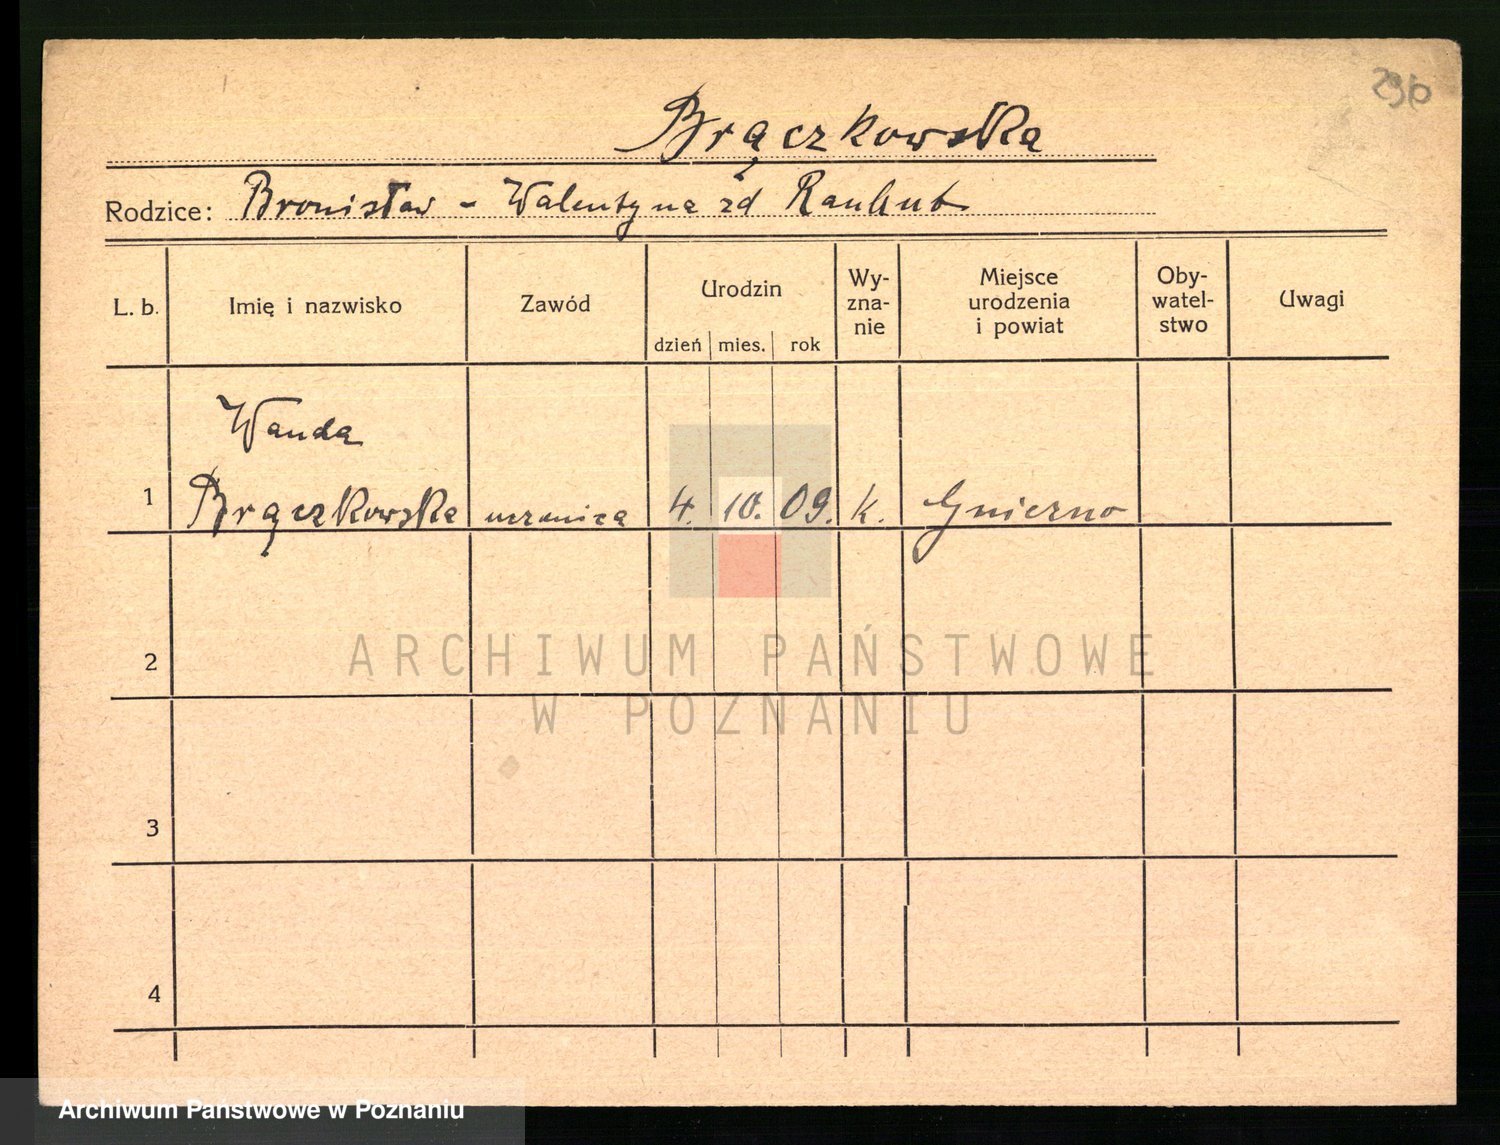 296
Brączkowska
Rodzice: Bronisław - Walentyna zd Rauhut
L. b.
Imię i nazwisko
Zawód
Urodzin
dzień mies. rok
Wy-
zna-
nie
Miejsce
urodzenia
i powiat
Oby-
watel-
stwo
Uwagi
Wanda
1 Brączkowska uczenica 4. 10. 09. k. Gniezno
2
ARCHIWUM PAŃSTWOWE
W POZNANIU
3
4
Archiwum Państwowe w Poznaniu